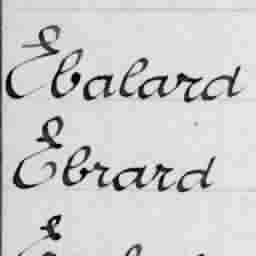 Ebalard
Ebrard